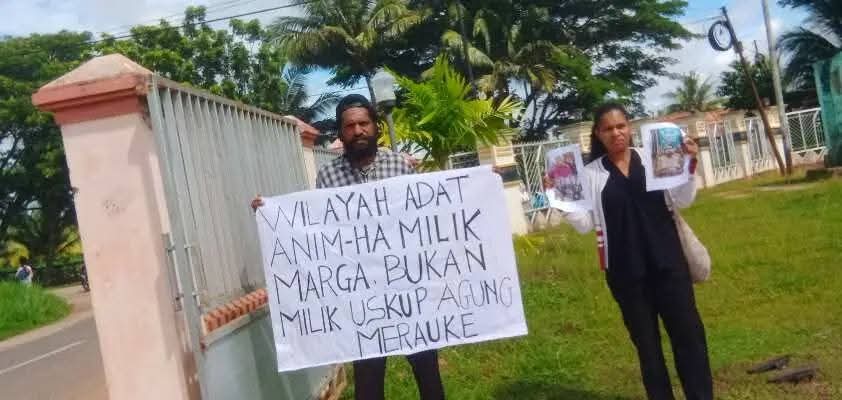 WILAYAH ADAT
ANIM-HA MILIK
MARGA. BUKAN
MILIK USKUP AGUNG
MERAUKE